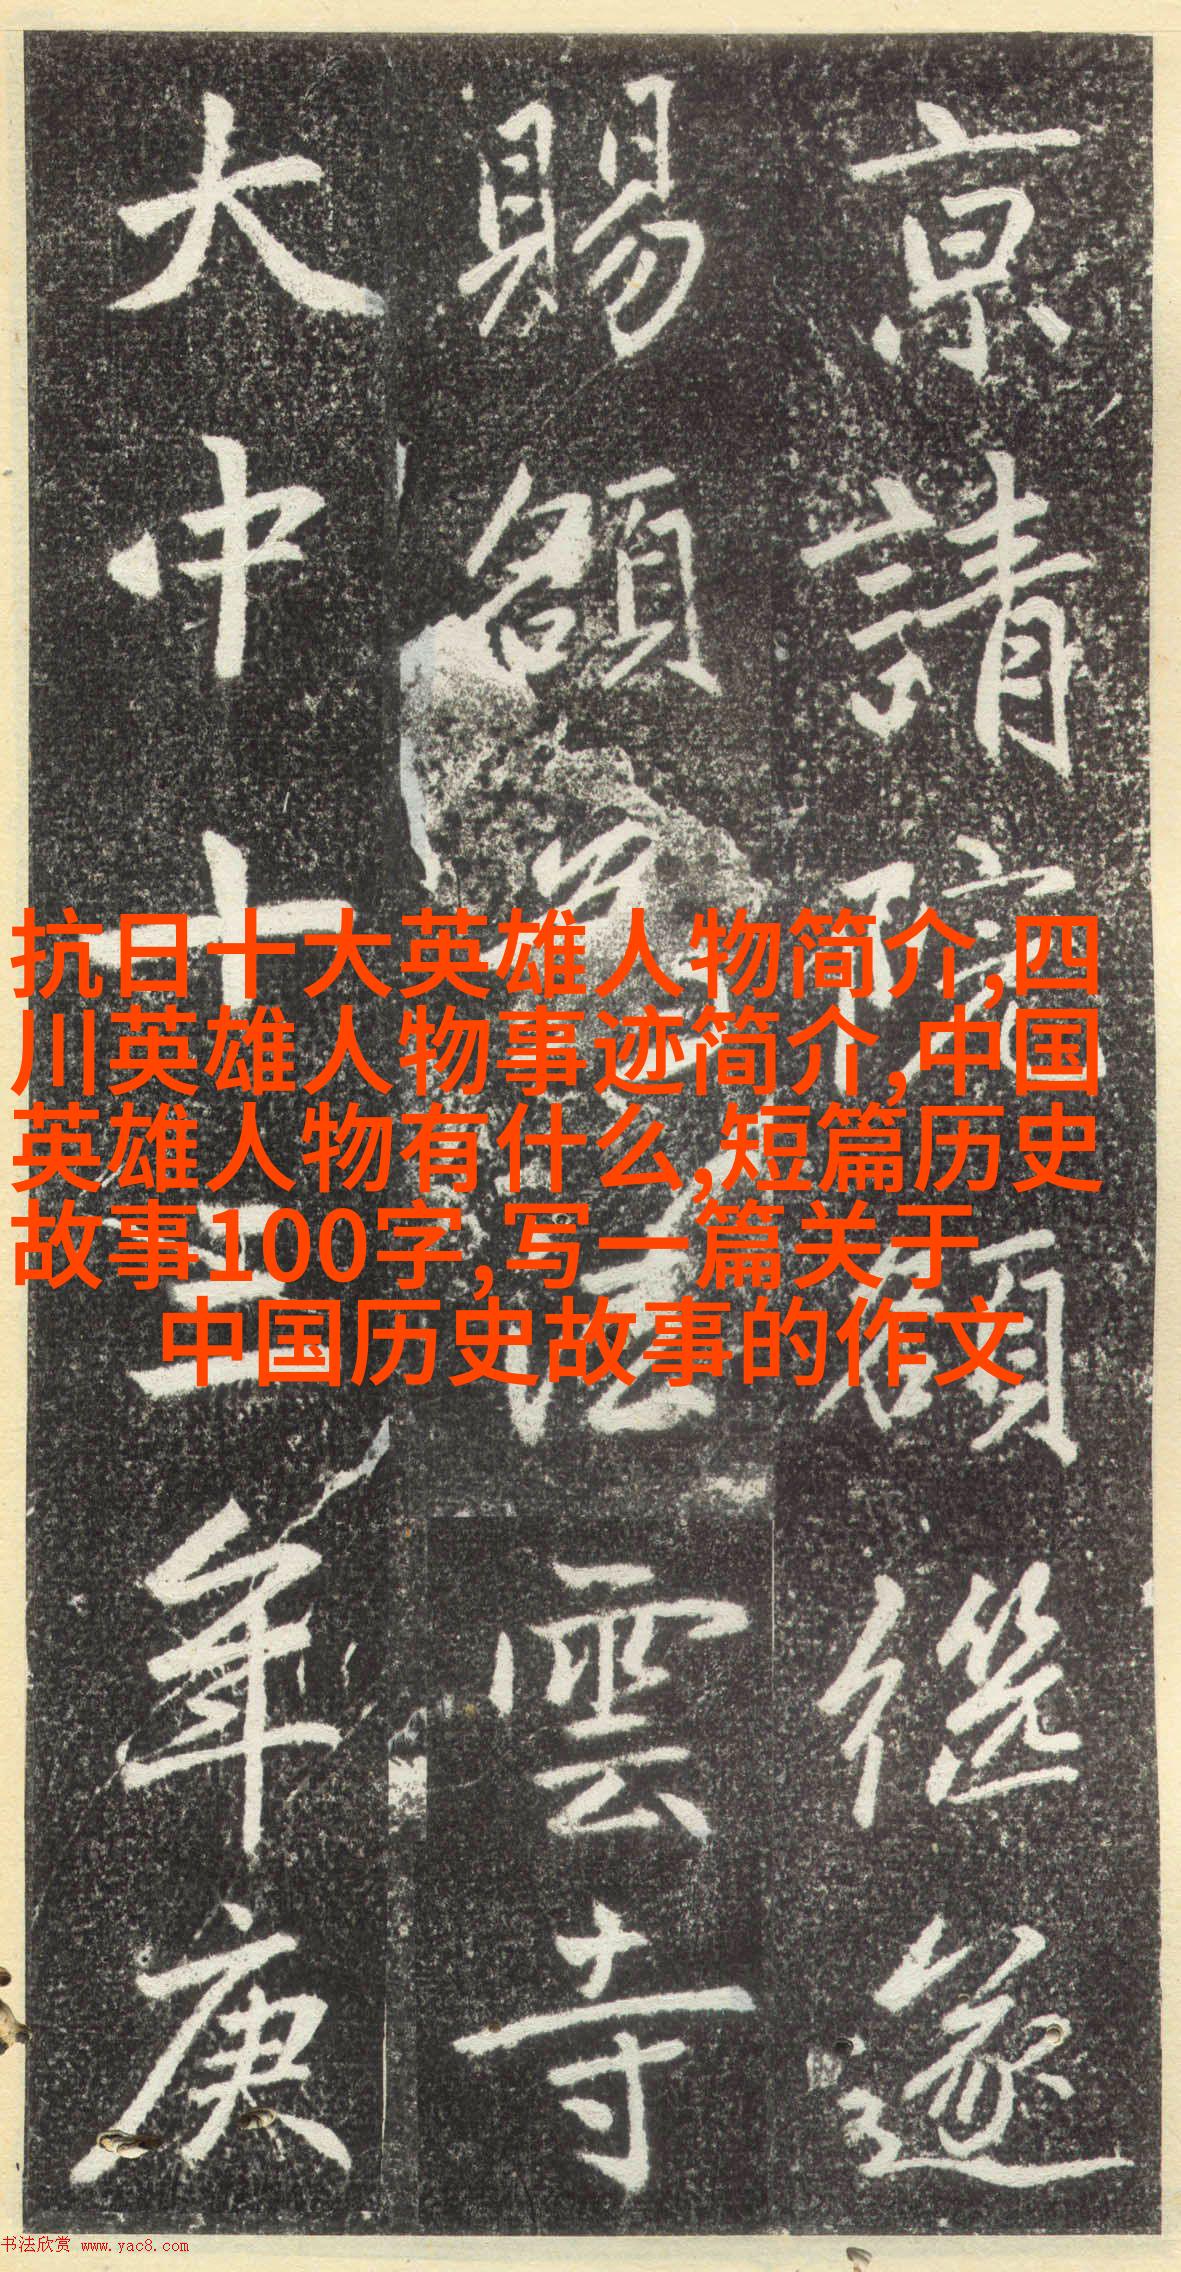 京請院額遂
賜額法雲寺
大中十三年庚
抗日十大英雄人物简介,四
川英雄人物事迹简介,中国
英雄人物有什么,短篇历史
故事100字,写一篇关于
中国历史故事的作文
书法欣赏 www.yac8.com